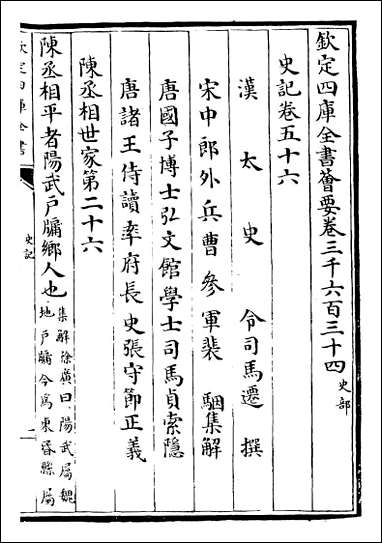 欽定四庫全書薈要卷三千六百三十四 史部
史記卷五十六
漢太史令司馬遷撰
宋中郎外兵曹參軍裴駰集解
唐國子博士弘文館學士司馬貞索隱
唐諸王侍讀率府長史張守節正義
陳丞相世家第二十六
陳丞相平者陽武戶牖鄉人也 集解徐廣曰陽武屬魏
地戶牖今為東昏縣屬
欽定四庫全書
史記
一